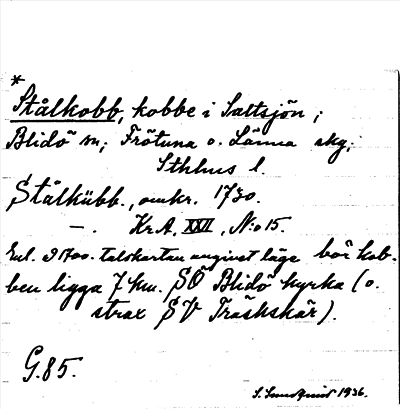 *
Stålkobb, kobbe i Saltsjön;
Blidö sn; Frötuna o. Länna skg;
Sthlms l.
Stålkübb., omkr. 1730.
—. KrA, XXII, N:o 15.
Enl. 1700-talskartan angivet läge bör kob-
ben ligga 7 km. SÖ Blidö kyrka (o.
strax SV Träskskär).
G.85.
1936.